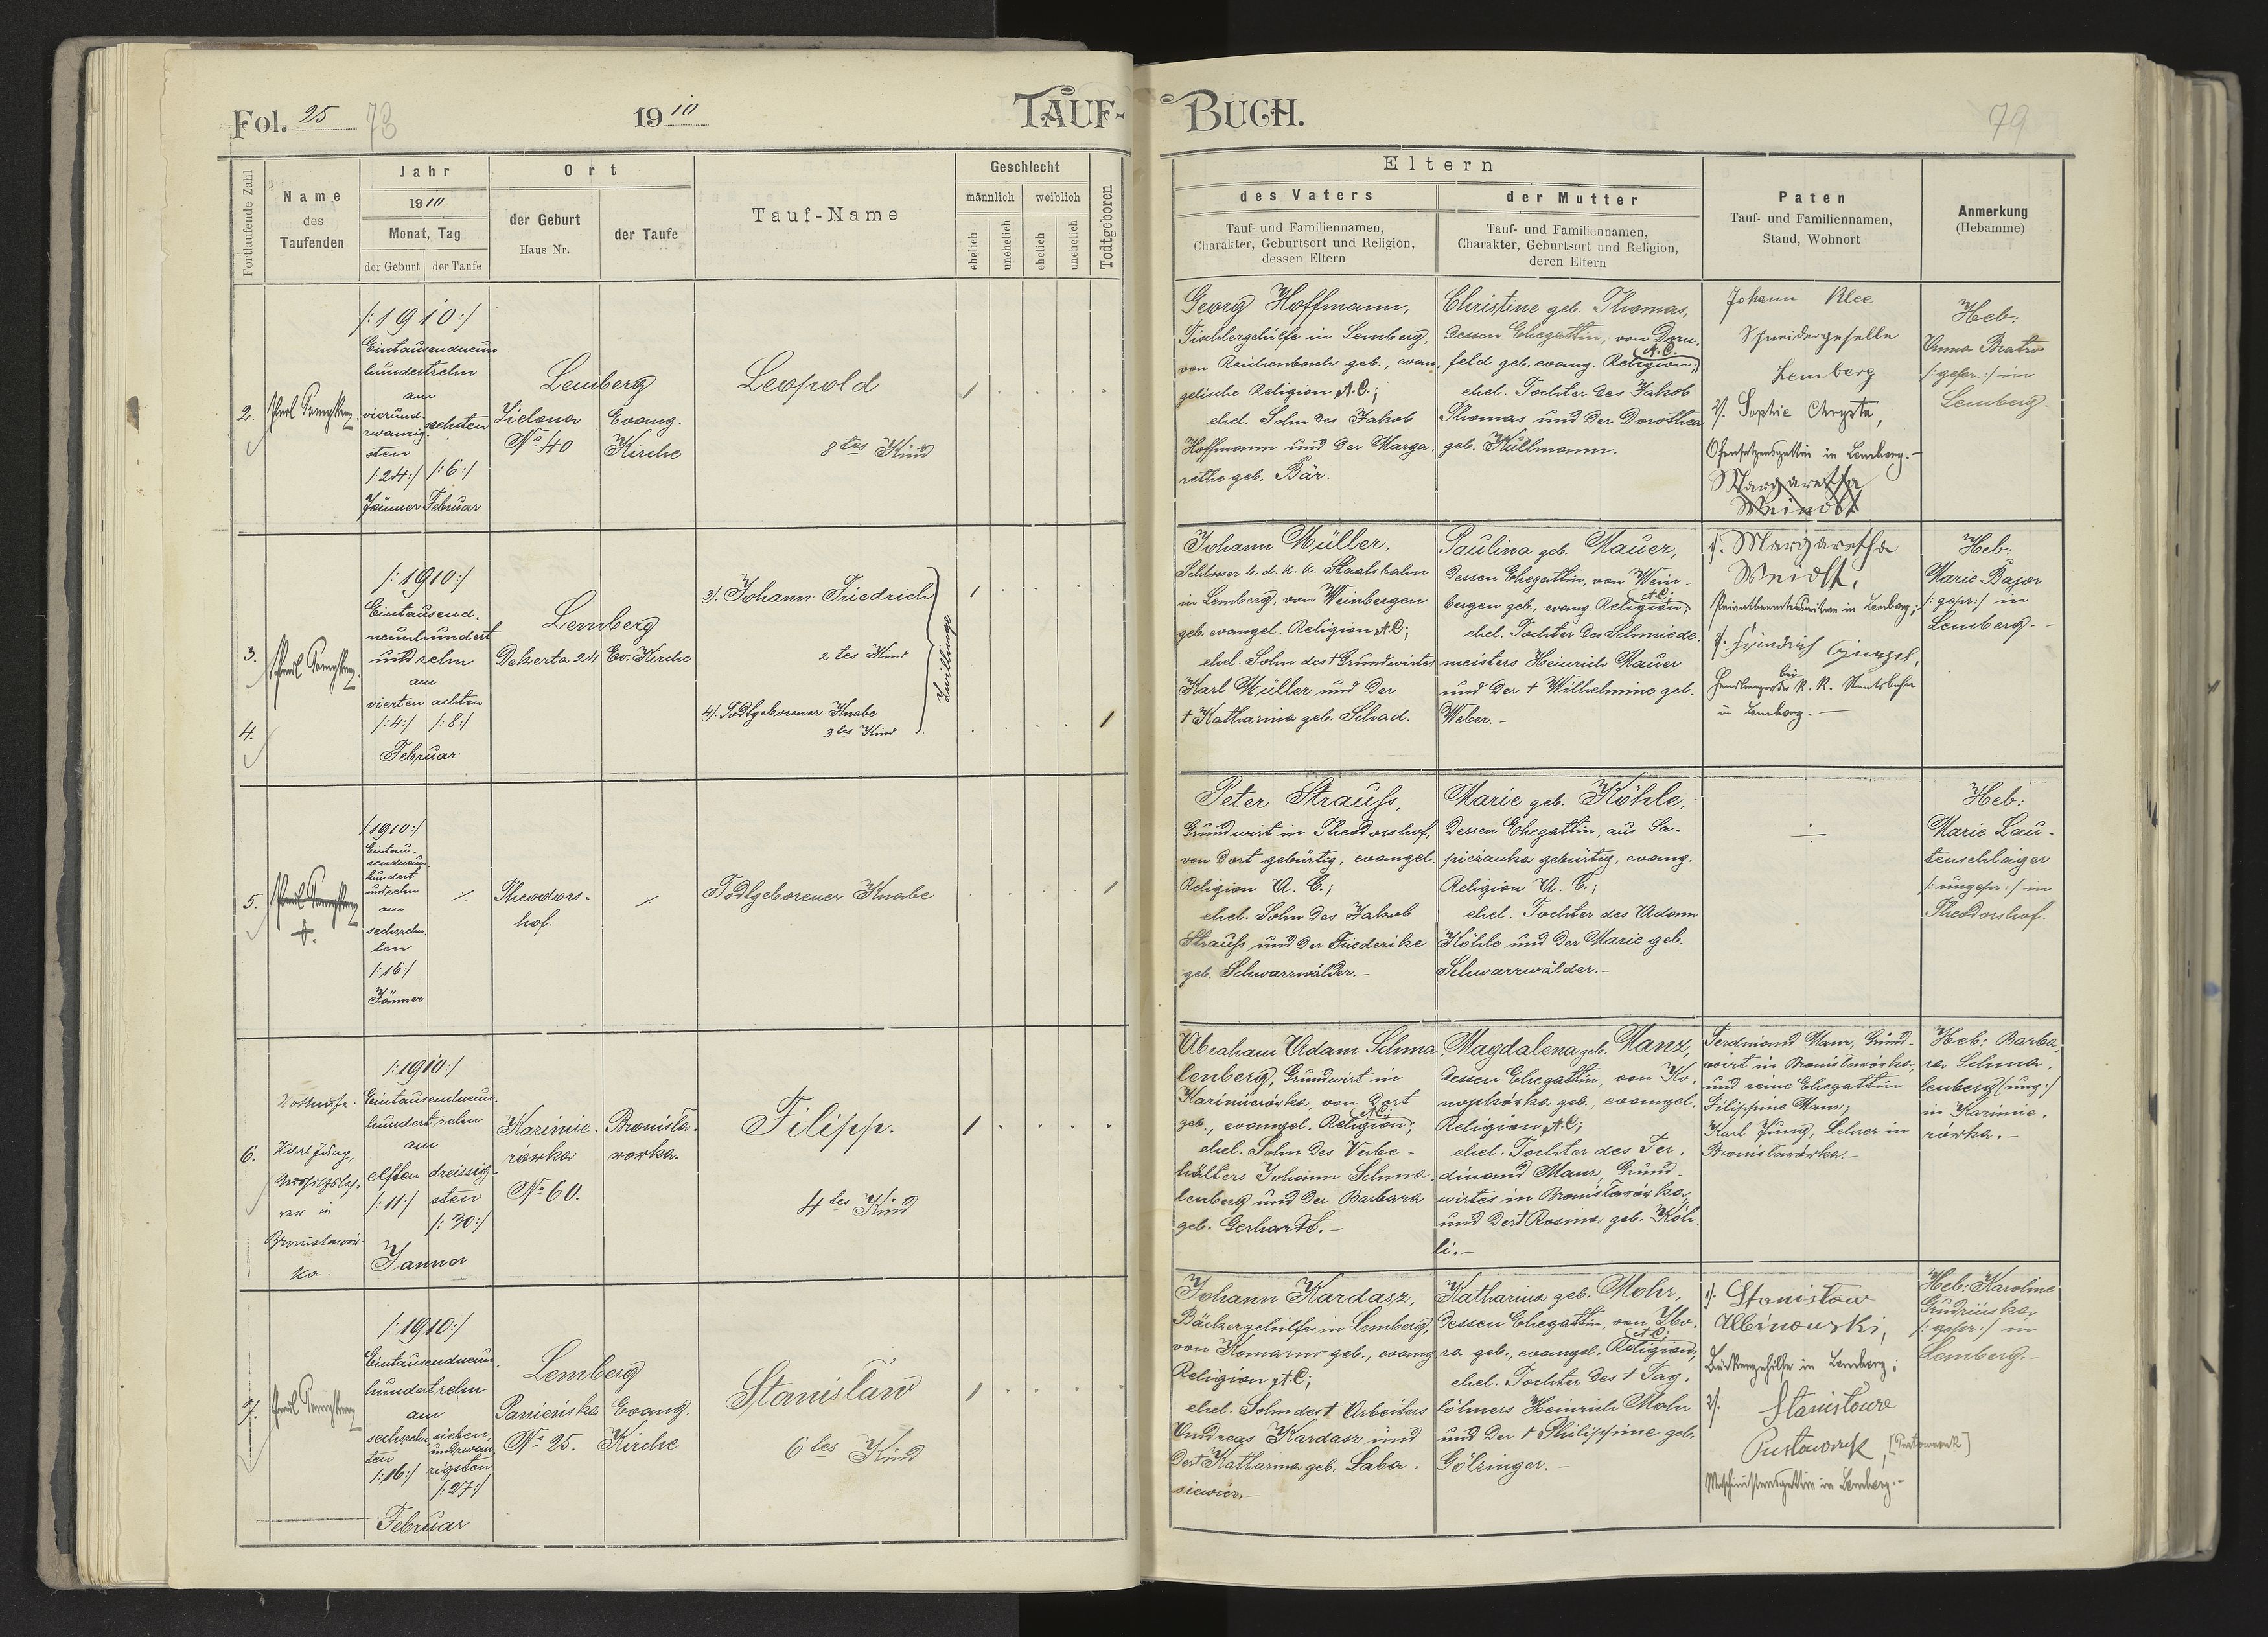 Fol. 25 78
1910
TAUF-
BUCH.
79
Fortlaufende Zahl
Name
des
Taufenden
Jahr
1910
Monat, Tag
der Geburt der Taufe
Ort
der Geburt
Haus Nr.
der Taufe
Tauf-Name
Geschlecht
männlich weiblich
ehelich unehelich ehelich unehelich
Todtgeboren
Eltern
des Vaters
Tauf- und Familiennamen,
Charakter, Geburtsort und Religion,
dessen Eltern
der Mutter
Tauf- und Familiennamen,
Charakter, Geburtsort und Religion,
deren Eltern
Paten
Tauf- und Familiennamen,
Stand, Wohnort
Anmerkung
(Hebamme)
2.
/:1910:/
Eintausendneun
hundertzehn
am
vierund-
zwanzig-
sten
/:24:/
Jänner
sechsten
/:6:/
Februar
Lemberg
Zielona
No 40
Evang.
Kirche
Leopold
8tes Kind
Georg Hoffmann,
Tischlergehilfe in Lemberg,
von Reichenbach geb., evan-
gelische Religion A.C.;
ehel. Sohn des Jakob
Hoffmann und der Marga-
rethe geb. Bär.
Christine geb. Thomas,
dessen Ehegattin, von Dorn-
feld geb. evang. Religion A.C.;
ehel. Tochter des Jakob
Thomas und der Dorothea
geb. Kullmann.
Johann Klee
Schneidergeselle
Lemberg
2). Sophie
in Lemberg.-
Margaretha
Weindl
Heb:
Anna
/:gepr.:/ in
Lemberg.
3.
4.
/:1910:/
Eintausend-
neunhundert
und zehn
am
vierten achten
/:4:/ /:8:/
Februar
Lemberg
Dekerta 24 Ev. Kirche
3). Johann Friedrich
2tes Kind
4). Todtgeborener Knabe
3tes Kind
Zwillinge
Johann Müller,
Schlosser b. d. k. k. Staatsbahn
in Lemberg, von Weinbergen
geb. evangel. Religion A.C.;
ehel. Sohn des † Grundwirtes
Karl Müller und der
† Katharina geb. Schad.
Paulina geb. Mauer,
dessen Ehegattin, von Wein-
bergen geb., evang. Religion A.C.;
ehel. Tochter des Schmiede-
meisters Heinrich Mauer
und der † Wilhelmine geb.
Weber.-
1). Margaretha
in Lemberg;
2). Friedrich
bei der K. K. Staatsbahn
in Lemberg.-
Heb:
Marie Bajor
/:gepr:/ in
Lemberg.-
5.
/:1910:/
Eintau-
sendneun-
hundert
und zehn
am
sechzehn-
ten
/:16:/
Jänner
Theodors-
hof.
Todtgeborener Knabe
Peter Strauß,
Grundwirt in Theodorshof,
von dort gebürtig, evangel.
Religion A. C.;
ehel. Sohn des Jakob
Strauß und der Friederike
geb. Schwarzwälder.-
Marie geb. Köhle,
dessen Ehegattin, aus Sa-
pieżanka gebürtig, evang.
Religion A. C.;
ehel. Tochter des Adam
Köhle und der Marie geb.
Schwarzwälder.-
Heb:
Marie Lau-
tenschläger
/:ungepr:/ in
Theodorshof.
6.
Nottaufe:
Karl Jung,
in
Bronisławów-
ka.
/:1910:/
Eintausendneun-
hundertzehn
am
elften dreissig-
/:11:/ sten
/:30:/
Jannar
Kazimie-
rówka
No 60.
Bronisła-
wówka.
Filipp.
4tes Kind
Abraham Adam Schma-
lenberg, Grundwirt in
Kazimierówka, von dort
geb., evangel. Religion A.C.;
ehel. Sohn des Verbe-
hälters Johann Schma-
lenberg und der Barbara
geb. Gerhardt.-
Magdalena geb. Manz,
dessen Ehegattin, von Ko-
nopkówka geb., evangel.
Religion A.C.;
ehel. Tochter des Fer-
dinand Manz, Grund-
wirtes in Bronisławówka,
und der † Rosina geb. Köh-
li.-
Ferdinand Manz, Grund-
wirt in Bronisławówka,
und seine Ehegattin
Filippine Manz;
Karl Jung, Lehrer in
Bronisławówka.-
Heb: Barba-
ra Schma-
lenberg /:ung:/
in Kazimie-
rówka.-
7.
/:1910:/
Eintausendneun-
hundertzehn
am
sechzehn-
ten
/:16:/
sieben-
undzwan-
zigsten
/:27:/
Februar
Lemberg
Panieńska
No 25.
Evang.
Kirche
Stanisław
6tes Kind
Johann Kardasz,
Bäckergehilfe in Lemberg,
von Komarno geb., evang.
Religion A.C.;
ehel. Sohn des † Arbeiters
Andreas Kardasz und
der † Katharina geb. Laba-
siewicz.-
Katharina geb. Mohr,
dessen Ehegattin, von
geb., evangel. Religion A.C.;
ehel. Tochter des † Tag-
löhners Heinrich Mohr
und der † Philippine geb.
Gölzinger.-
1). Stanisław
Albinowski,
Bäckergehilfe in Lemberg;
2). Stanisława
in Lemberg.-
Heb: Karoline
Grudzińska
/:gepr:/ in
Lemberg.-